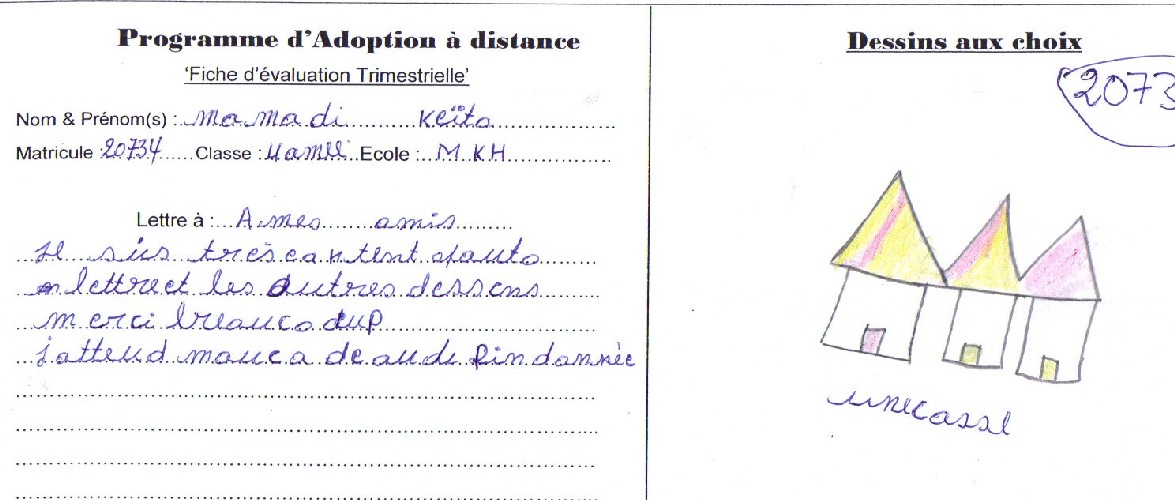 Programme d'Adoption à distance
'Fiche d'évaluation Trimestrielle'
Nom & Prénom(s) : Mamadi Keïta
Matricule 20734 Classe : Ecole : M KH
Lettre à : A mes amis
sùs très cantent
lettreet les autres dessens
merci breaucodup
jattend findannée
Dessins aux choix
2073
unecasse